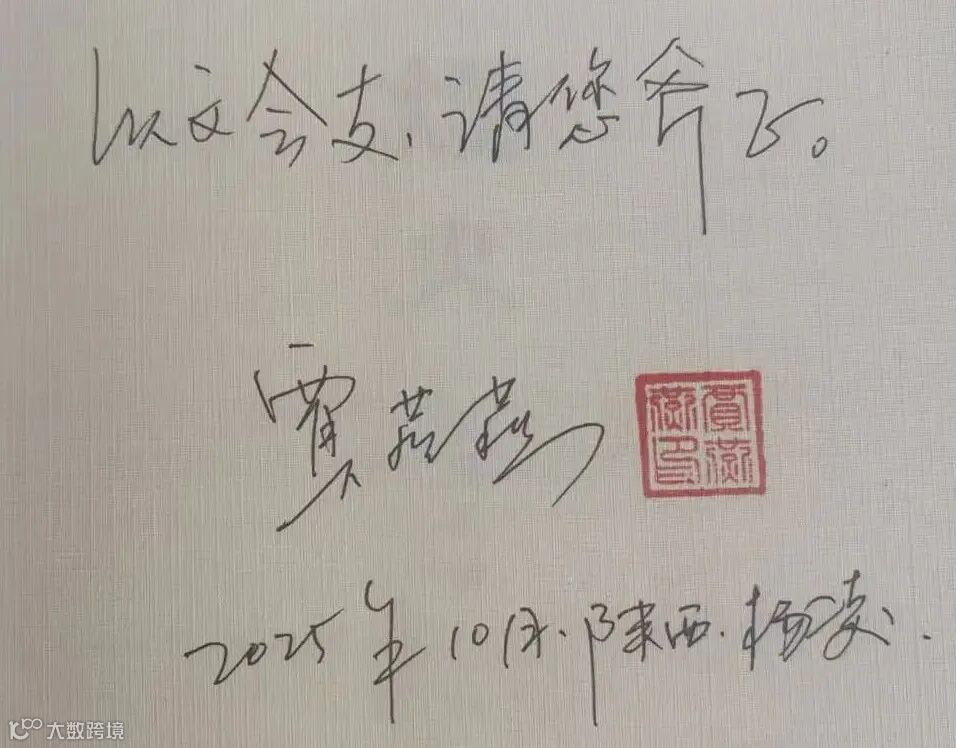 以文会友,请您斧正。
贾燕燕
贾燕燕印
2025年10月.陕西.杨凌.
大数跨境